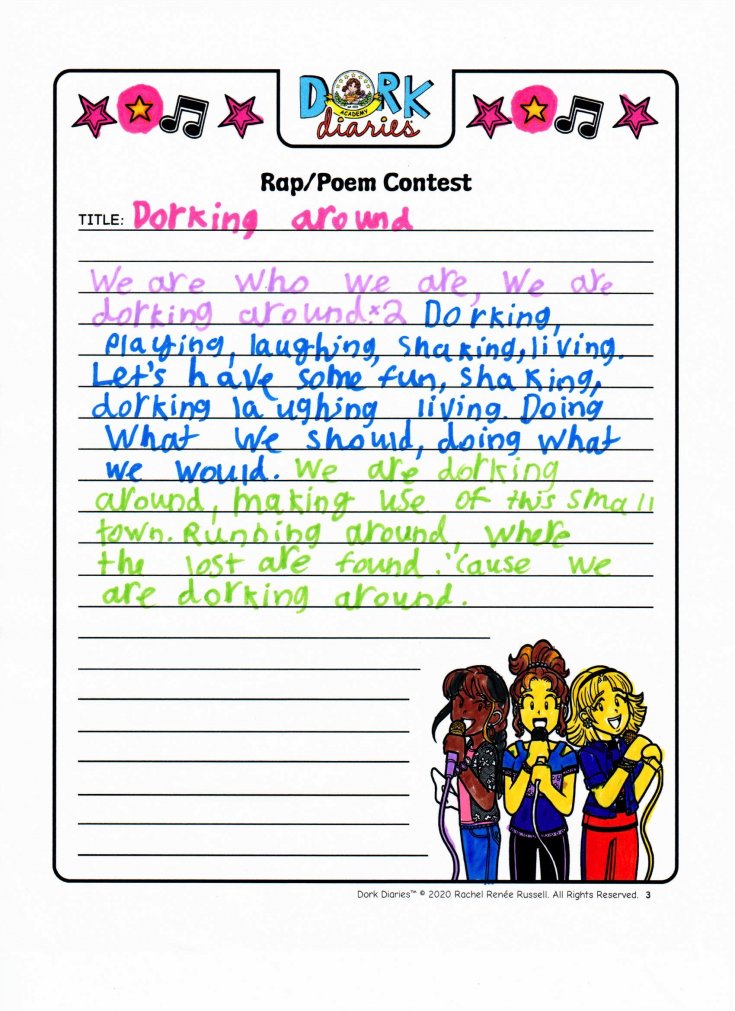 DORK
ACADEMY
diaries
Rap/Poem Contest
TITLE: Dorking around
We are who we are, We are
dorking around.x2 Dorking,
Playing, laughing, shaking, living.
Let's have some fun, shaking,
dorking laughing living. Doing
What We should, doing what
we would. We are dorking
around, making use of this small
town. Running around, where
the lost are found. 'cause we
are dorking around.
Dork Diaries™ © 2020 Rachel Renée Russell. All Rights Reserved. 3